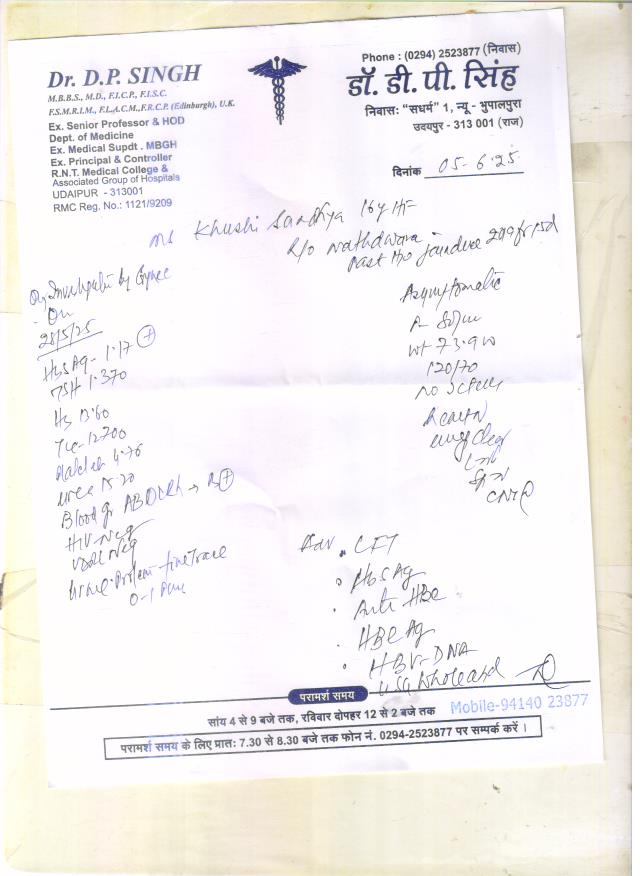 Dr. D.P. SINGH
M.B.B.S., M.D., F.I.C.P., F.I.S.C.
F.S.M.R.I.M., F.L.A.C.M.,F.R.C.P. (Edinburgh), U.K.
Ex. Senior Professor & HOD
Dept. of Medicine
Ex. Medical Supdt . MBGH
Ex. Principal & Controller
R.N.T. Medical College &
Associated Group of Hospitals
UDAIPUR - 313001
RMC Reg. No.: 1121/9209
Phone : (0294) 2523877 (निवास)
डॉ. डी. पी. सिंह
निवास: "सधर्म" 1, न्यू - भुपालपुरा
उदयपुर - 313 001 (राज)
दिनांक 05-6-25
Ms Khushi
R/o Nathdwara
Past H/o
Investigation by Gynec
On
28/5/25
HbsAg - 1.17 +
TSH 1.370
Hb 13.60
TLC - 12700
4.76
Urea 15.20
Blood Gr ABO &Rh → B +
HIV Neg
VDRL Neg
Urine - Protein - fine Trace
Asymptomatic
P - 80/m
Wt 73.9
120/70
No
Lungs Clear
Adv
HbsAg
Anti HBe
HBeAg
HBV-DNA
USG Whole abd
परामर्श समय
सांय 4 से 9 बजे तक, रविवार दोपहर 12 से 2 बजे तक
Mobile-94140 23877
परामर्श समय के लिए प्रातः 7.30 से 8.30 बजे तक फोन नं. 0294-2523877 पर सम्पर्क करें ।